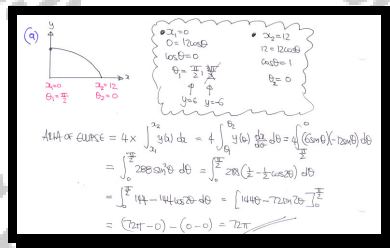 (a)
y
x
x₁=0 x₂=12
θ₁=π/2 θ₂=0
• x₁=0
0=12cosθ
cosθ=0
θ₁= π/2, 3π/2
y=6 y=-6
• x₂=12
12=12cosθ
cosθ=1
θ₂=0
AREA OF ELLIPSE = 4 × ∫_{x₁}^{x₂} y(x) dx = 4 ∫_{θ₁}^{θ₂} y(θ) dx/dθ dθ = 4 ∫_{π/2}^{0} (6sinθ)(-12sinθ) dθ
= ∫_{0}^{π/2} 288sin²θ dθ = ∫_{0}^{π/2} 288(1/2 - 1/2 cos2θ) dθ
= ∫_{0}^{π/2} 144 - 144cos2θ dθ = [144θ - 72sin2θ]_{0}^{π/2}
= (72π-0) - (0-0) = 72π